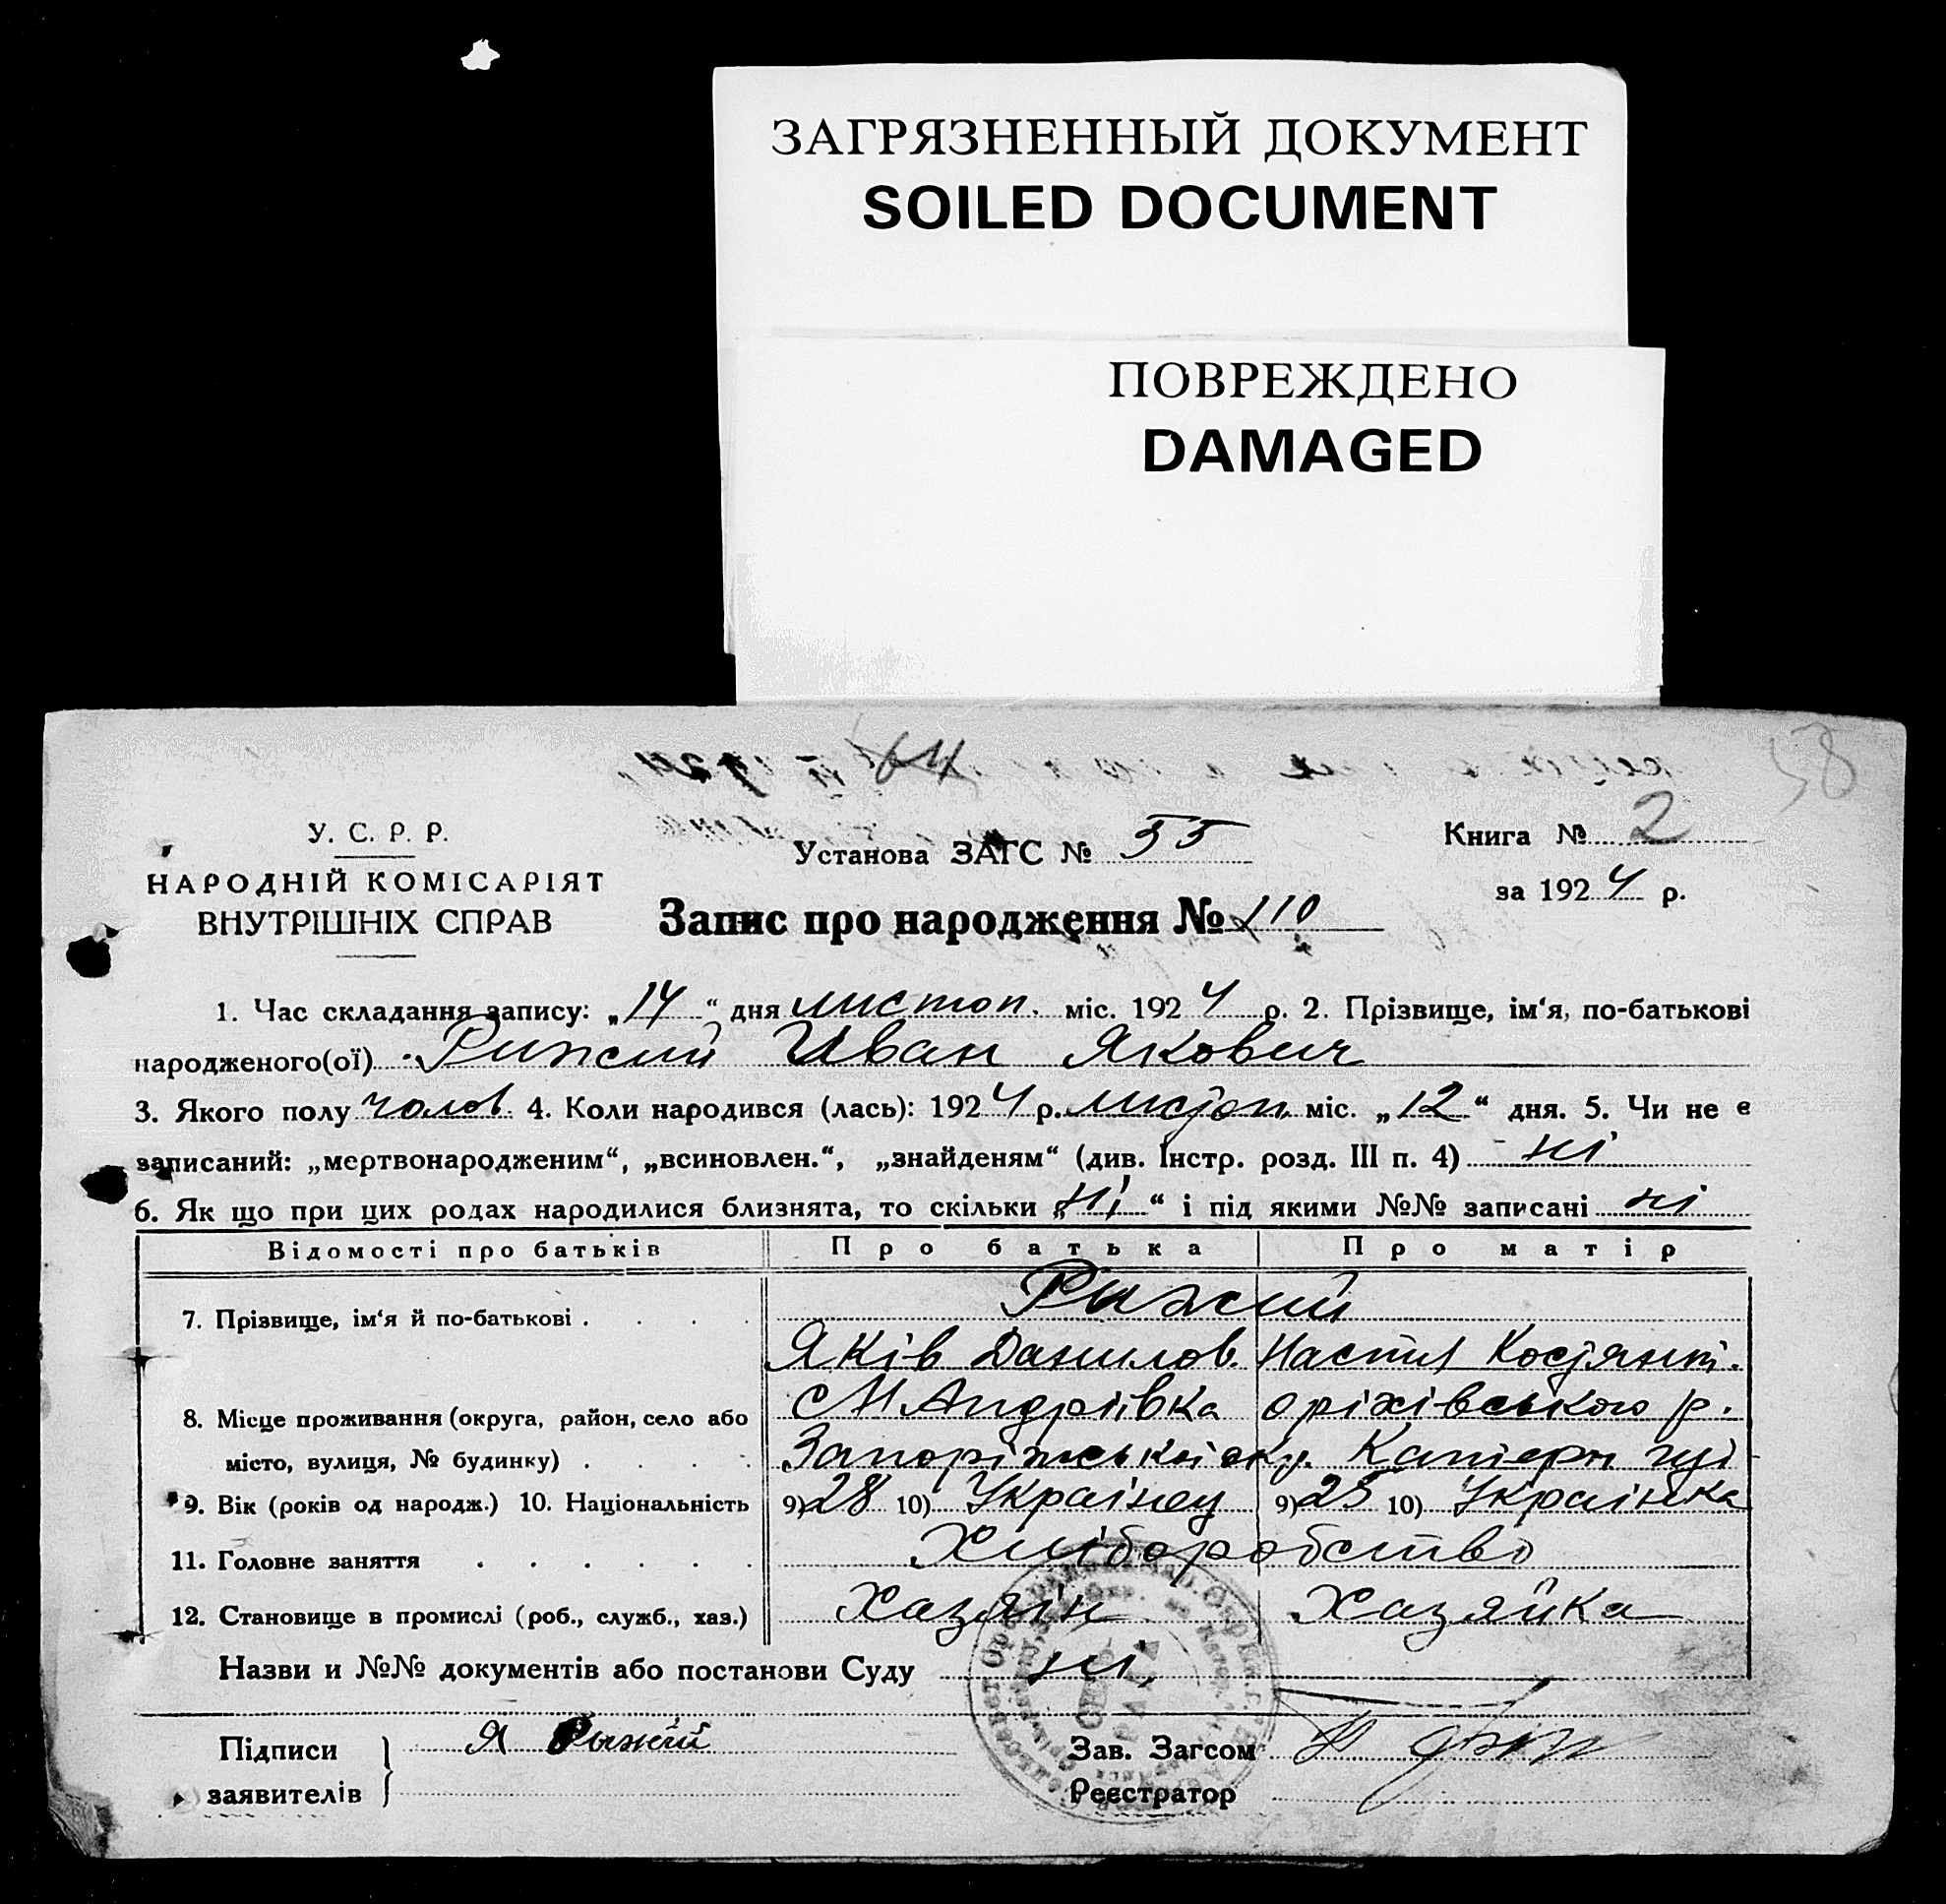 ЗАГРЯЗНЕННЫЙ ДОКУМЕНТ
SOILED DOCUMENT
ПОВРЕЖДЕНО
DAMAGED
58
У. С. Р. Р.
НАРОДНІЙ КОМІСАРІЯТ
ВНУТРІШНІХ СПРАВ
Установа ЗАГС № 55
Книга № 2
за 1924 р.
Запис про народження № 110
1. Час складання запису: „14“ дня листоп. міс. 1924 р. 2. Прізвище, ім‘я, по-батькові
народженого(ої) Рижий Иван Якович
3. Якого полу чолов. 4. Коли народився (лась): 1924 р. листоп. міс. „12“ дня. 5. Чи не є
записаний: „мертвонародженим“, „всиновлен.“, „знайденям“ (див. Інстр. розд. III п. 4) ні
6. Як що при цих родах народилися близнята, то скільки „ні“ і під якими №№ записані ні
Відомості про батьків Про батька Про матір
7. Прізвище, ім‘я й по-батькові . . . . Рижий
Яків Данилов. Настя Костянт.
8. Місце проживання (округа, район, село або С М Андріівка оріхівського р.
місто, вулиця, № будинку) . . . . Запоріжськоі окр. Катерн. гуі
9. Вік (років од народж.) 10. Національність 9) 28 10) Украінец 9) 25 10) Украінка
11. Головне заняття . . . . . . Хліборобство
12. Становище в промислі (роб., служб., хаз.) Хазяін Хазяйка
Назви и №№ документів або постанови Суду ні
Підписи Я Рыжий Зав. Загсом
заявителів Реєстратор